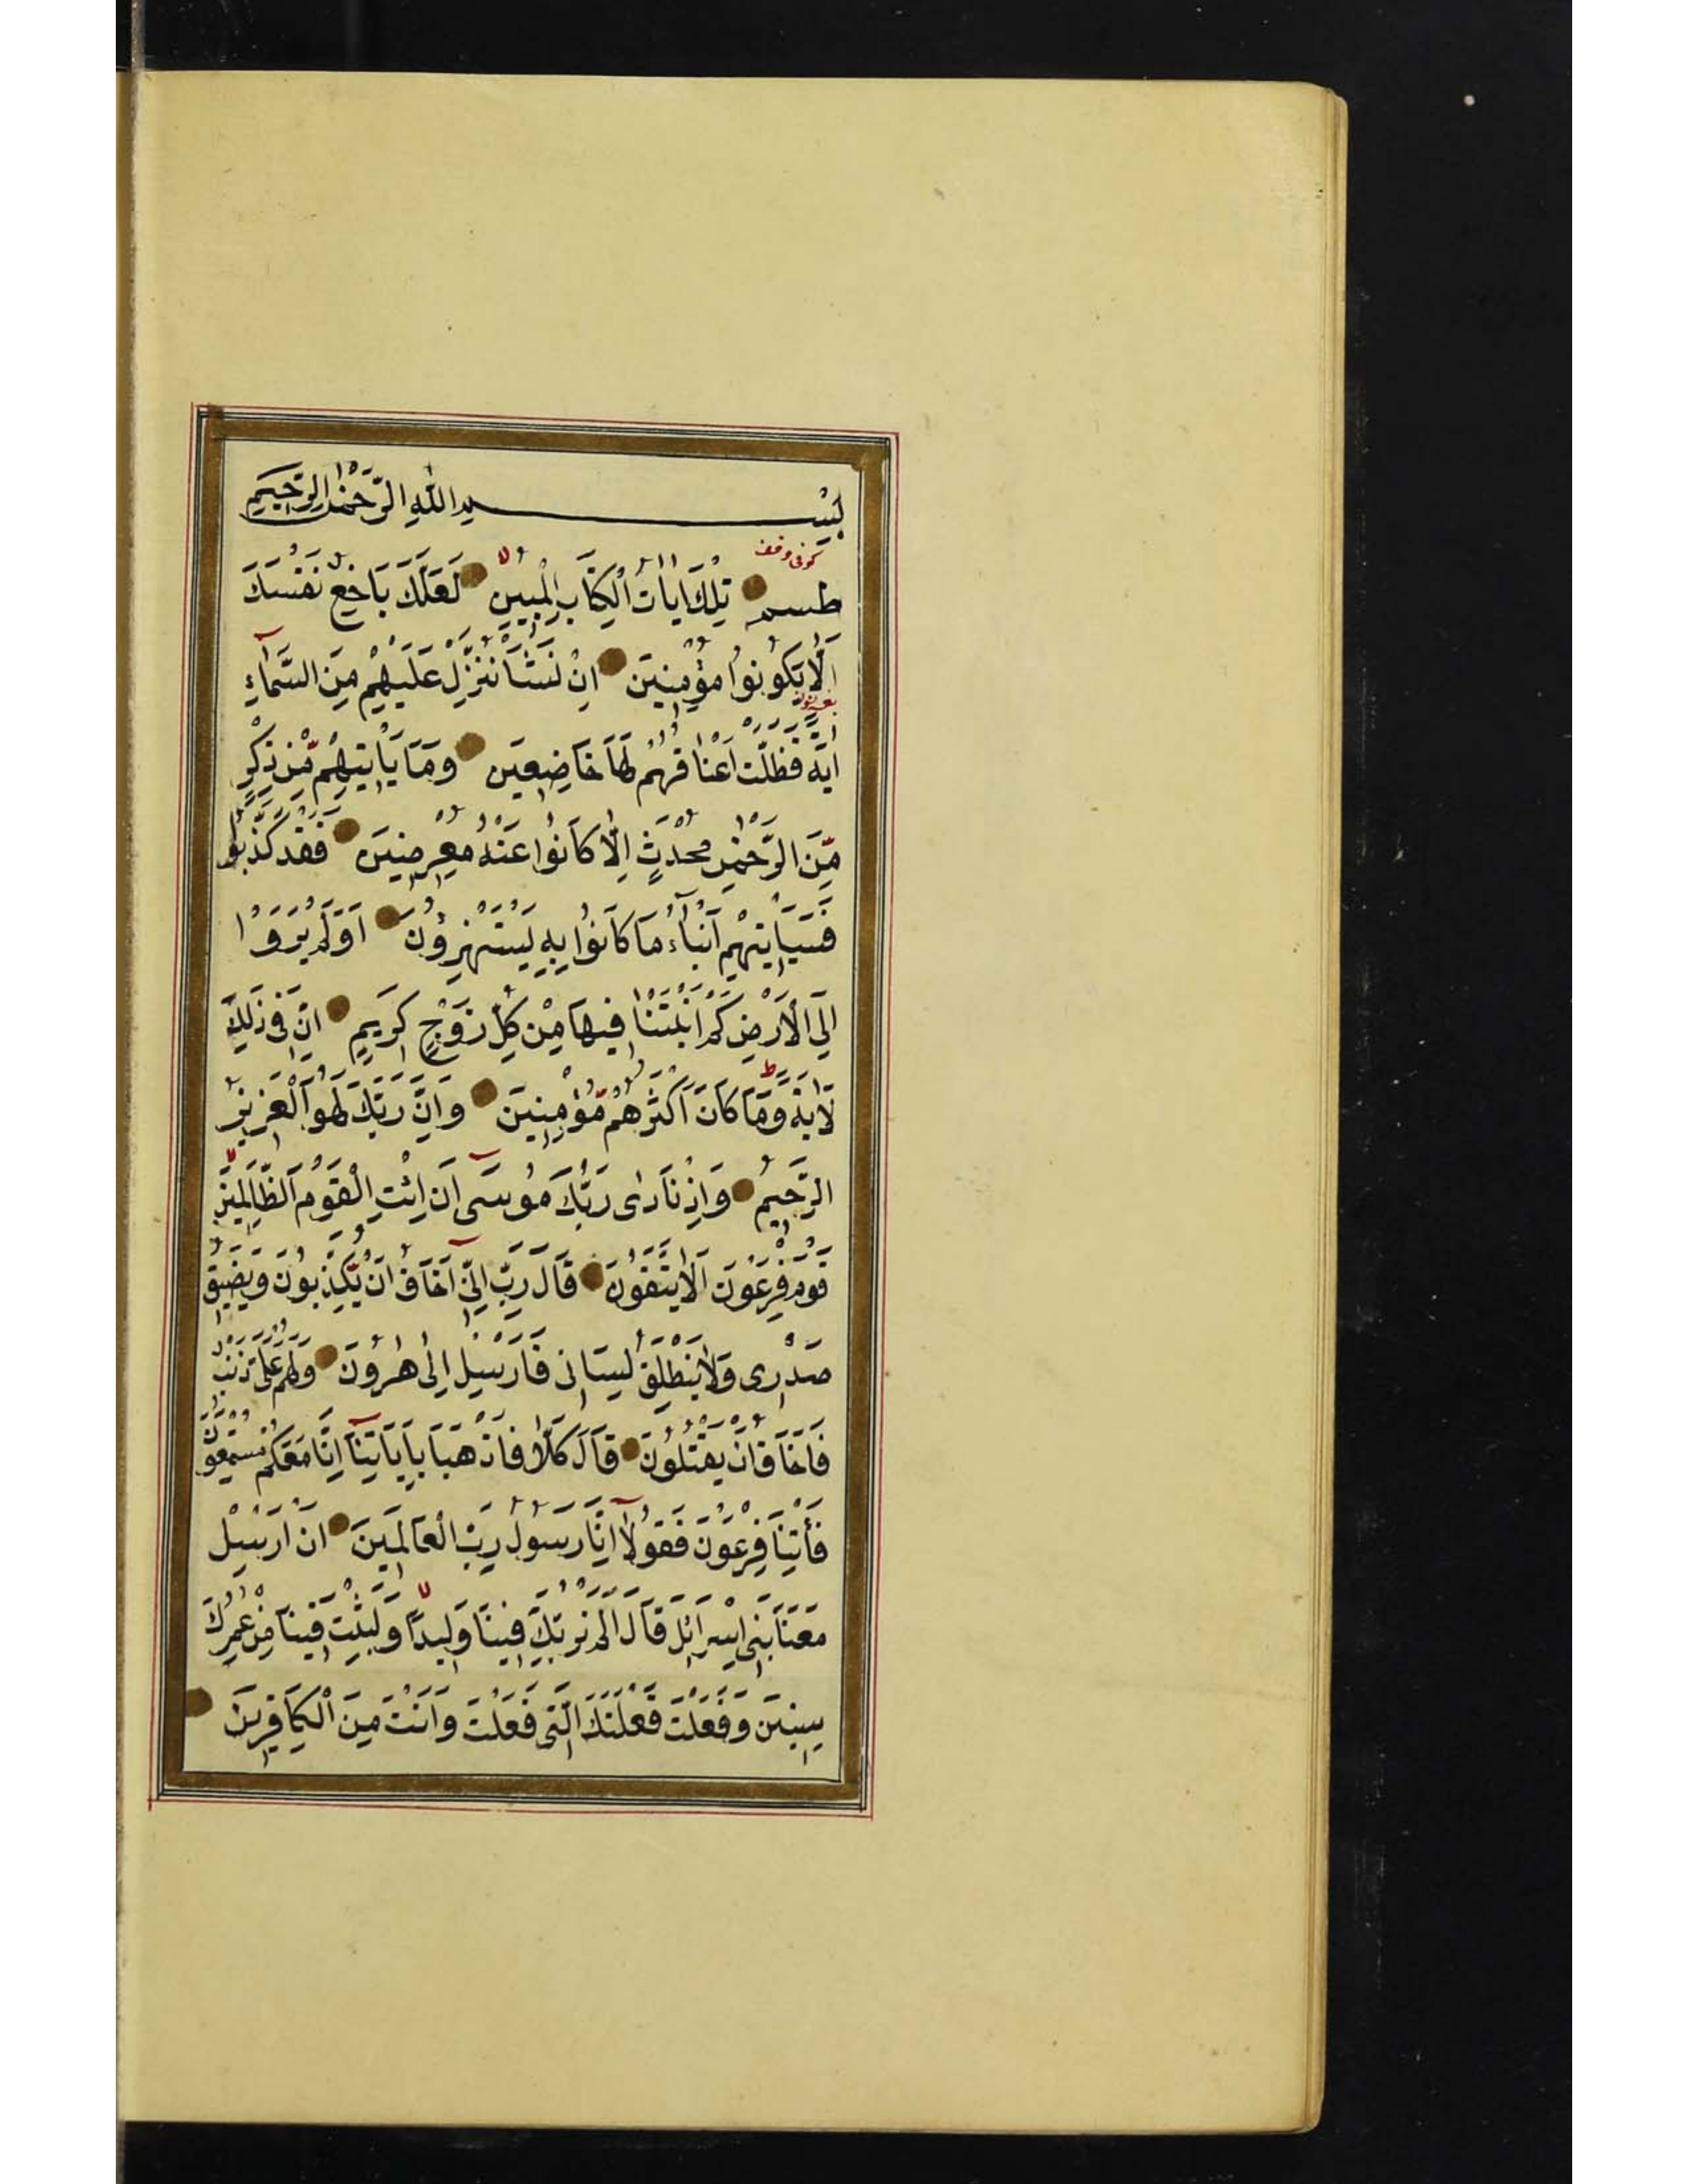 بِسْمِ اللّٰهِ الرَّحْمٰنِ الرَّحِيمِ
كوفى وقف
طسم تِلْكَ اٰيَاتُ الْكِتَابِ الْمُبِينِ لَعَلَّكَ بَاخِعٌ نَفْسَكَ
اَلَّا يَكُونُوا مُؤْمِنِينَ اِنْ نَشَأْ نُنَزِّلْ عَلَيْهِمْ مِنَ السَّمَاءِ
اٰيَةً فَظَلَّتْ اَعْنَاقُهُمْ لَهَا خَاضِعِينَ وَمَا يَأْتِيهِمْ مِّنْ ذِكْرٍ
مِّنَ الرَّحْمٰنِ مُحْدَثٍ اِلَّا كَانُوا عَنْهُ مُعْرِضِينَ فَقَدْ كَذَّبُوا
فَسَيَأْتِيهِمْ اَنْبَاءُ مَا كَانُوا بِهِ يَسْتَهْزِؤُنَ اَوَلَمْ يَرَوْا
اِلَى الْاَرْضِ كَمْ اَنْبَتْنَا فِيهَا مِنْ كُلِّ زَوْجٍ كَرِيمٍ اِنَّ فِى ذٰلِكَ
لَاٰيَةً وَمَا كَانَ اَكْثَرُهُمْ مُّؤْمِنِينَ وَاِنَّ رَبَّكَ لَهُوَ الْعَزِيزُ
الرَّحِيمُ وَاِذْ نَادٰى رَبُّكَ مُوسَى اَنِ ائْتِ الْقَوْمَ الظَّالِمِينَ
قَوْمَ فِرْعَوْنَ اَلَا يَتَّقُونَ قَالَ رَبِّ اِنِّى اَخَافُ اَنْ يُكَذِّبُونِ وَيَضِيقُ
صَدْرِى وَلَا يَنْطَلِقُ لِسَانِى فَاَرْسِلْ اِلٰى هٰرُونَ وَلَهُمْ عَلَىَّ ذَنْبٌ
فَاَخَافُ اَنْ يَقْتُلُونِ قَالَ كَلَّا فَاذْهَبَا بِاٰيَاتِنَا اِنَّا مَعَكُمْ مُسْتَمِعُونَ
فَأْتِيَا فِرْعَوْنَ فَقُولَا اِنَّا رَسُولُ رَبِّ الْعَالَمِينَ اَنْ اَرْسِلْ
مَعَنَا بَنِى اِسْرَائِلَ قَالَ اَلَمْ نُرَبِّكَ فِينَا وَلِيدًا وَلَبِثْتَ فِينَا مِنْ عُمُرِكَ
سِنِينَ وَفَعَلْتَ فَعْلَتَكَ الَّتِى فَعَلْتَ وَاَنْتَ مِنَ الْكَافِرِينَ